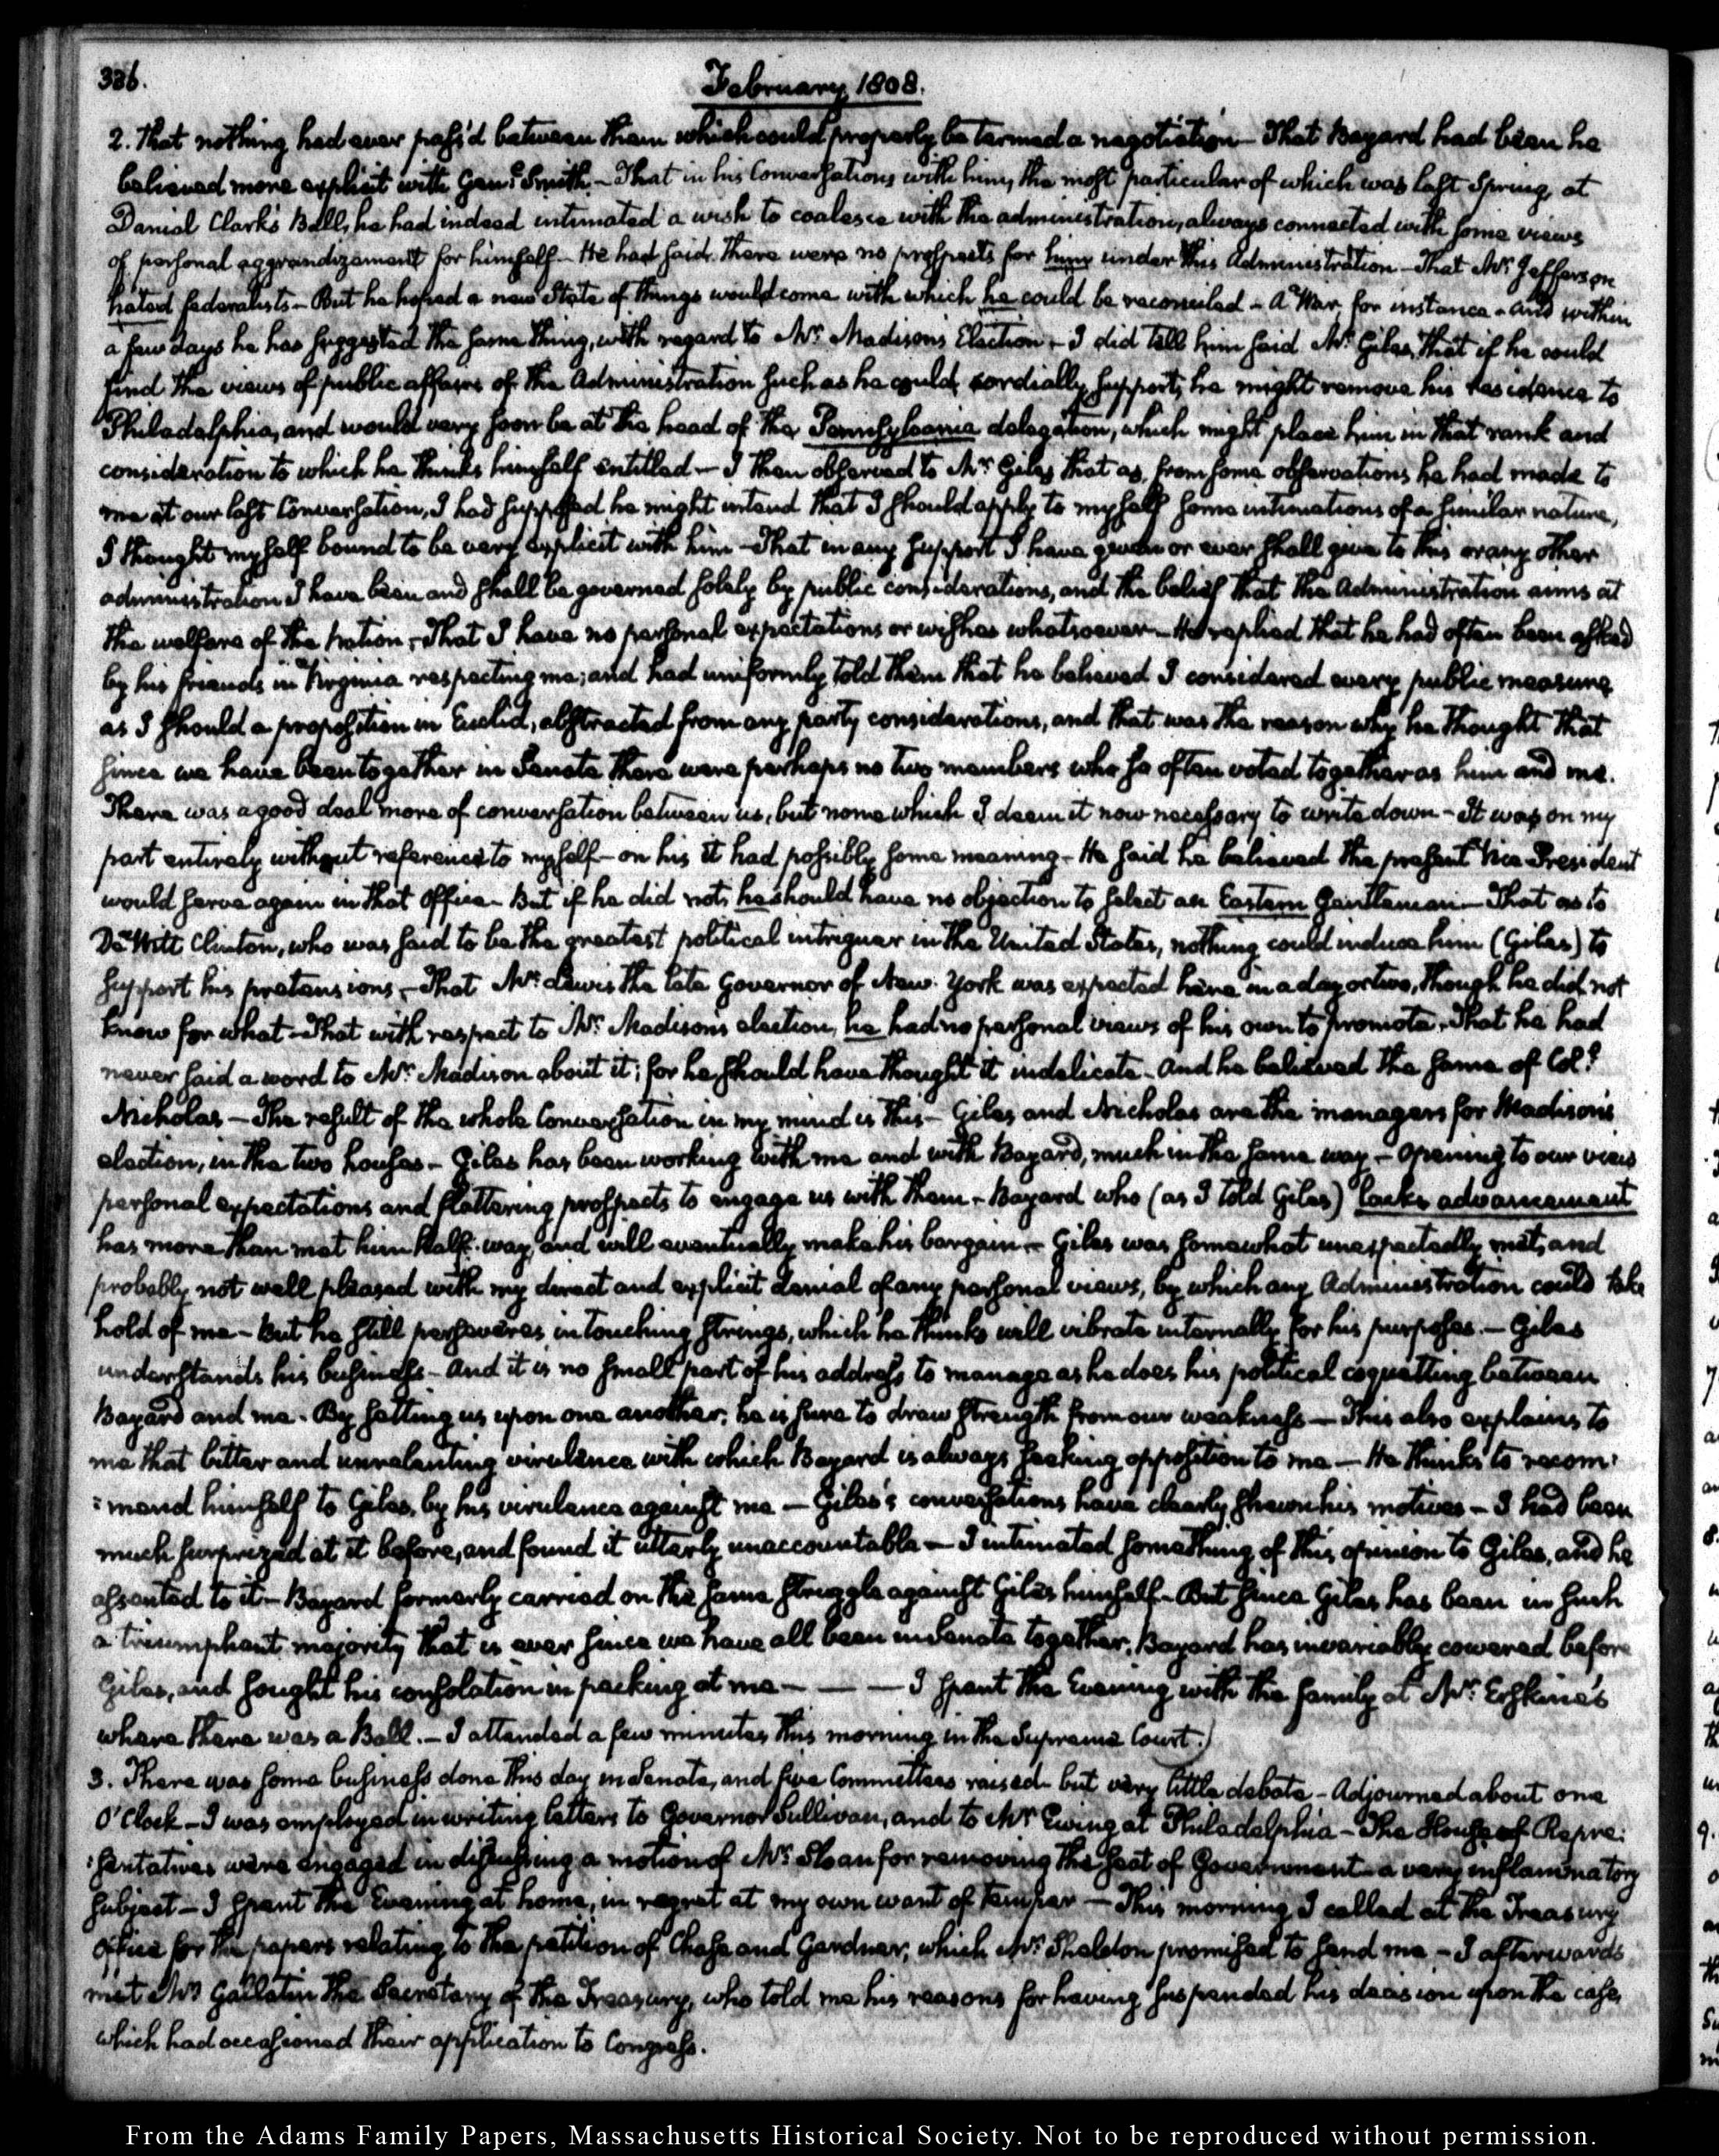 336.
February 1808.
2. That nothing had ever pass'd between them which could properly be termed a negotiation — That Bayard had been he
believed more explicit with Genl. Smith — That in his Conversations with him, the most particular of which was last Spring, at
Daniel Clark's Ball, he had indeed intimated a wish to coalesce with the administration, always connected with some views
of personal aggrandizement for himself — He had said there were no prospects for him under this Administration — That Mr. Jefferson
hated federalists — But he hoped a new State of things would come with which he could be reconciled — A War for instance — and within
a few days he has suggested the same thing, with regard to Mr. Madison's Election — I did tell him said Mr. Giles, that if he could
find the views of public affairs of the Administration such as he could cordially support, he might remove his residence to
Philadelphia, and would very soon be at the head of the Pennsylvania delegation, which might place him in that rank and
consideration to which he thinks himself entitled — I then observed to Mr. Giles that as, from some observations he had made to
me at our last Conversation, I had supposed he might intend that I should apply to myself some intimations of a similar nature,
I thought myself bound to be very explicit with him — That in any support I have given or ever shall give to this or any other
administration I have been and shall be governed solely by public considerations, and the belief that the Administration aims at
the welfare of the Nation — That I have no personal expectations or wishes whatsoever — He replied that he had often been asked
by his friends in Virginia respecting me; and had uniformly told them that he believed I considered every public measure
as I should a proposition in Euclid, abstracted from any party considerations, and that was the reason why he thought that
since we have been together in Senate there were perhaps no two members who so often voted together as him and me.
There was a good deal more of conversation between us, but none which I deem it now necessary to write down — It was on my
part entirely without reference to myself — on his it had possibly some meaning — He said he believed the present Vice-President
would serve again in that Office — But if he did not, he should have no objection to select an Eastern Gentleman — That as to
De Witt Clinton, who was said to be the greatest political intriguer in the United States, nothing could induce him (Giles) to
support his pretensions — That Mr. Lewis the late Governor of New-York was expected here in a day or two, though he did not
know for what — That with respect to Mr. Madison's election, he had no personal views of his own to promote. That he had
never said a word to Mr. Madison about it; for he should have thought it indelicate — And he believed the same of Col:
Nicholas — The result of the whole Conversation in my mind is this — Giles and Nicholas are the managers for Madison's
election, in the two houses — Giles has been working with me and with Bayard, much in the same way — opening to our views
personal expectations and flattering prospects to engage us with them — Bayard who (as I told Giles) lacks advancement
has more than met him half-way and will eventually make his bargain — Giles was somewhat unexpectedly met, and
probably not well pleased with my direct and explicit denial of any personal views, by which any Administration could take
hold of me — But he still perseveres in touching strings, which he thinks will vibrate internally for his purposes. — Giles
understands his business — And it is no small part of his address to manage as he does his political coquetting between
Bayard and me. By setting us upon one another, he is sure to draw strength from our weakness — This also explains to
me that bitter and unrelenting virulence with which Bayard is always seeking opposition to me — He thinks to recom:
:mend himself to Giles, by his virulence against me — Giles's conversations have clearly shewn his motives — I had been
much surprized at it before, and found it utterly unaccountable — I intimated something of this opinion to Giles, and he
assented to it — Bayard formerly carried on the same struggle against Giles himself — But since Giles has been in such
a triumphant majority that is ever since we have all been in Senate together, Bayard has invariably cowered before
Giles, and sought his consolation in pecking at me — — — I spent the Evening with the family at Mr. Erskine's
where there was a Ball. — I attended a few minutes this morning in the Supreme Court.)
3. There was some business done this day in Senate, and five Committees raised — but very little debate — Adjourned about one
O'Clock — I was employed in writing letters to Governor Sullivan, and to Mr. Ewing at Philadelphia — The House of Repre:
:sentatives were engaged in discussing a motion of Mr. Sloan for removing the seat of Government — a very inflammatory
subject — I spent the Evening at home, in regret at my own want of temper — This morning I called at the Treasury
Office for the papers relating to the petition of Chase and Gardner, which Mr. Sheldon promised to send me — I afterwards
met Mr. Gallatin the Secretary of the Treasury, who told me his reasons for having suspended his decision upon the case,
which had occasioned their application to Congress.
From the Adams Family Papers, Massachusetts Historical Society. Not to be reproduced without permission.